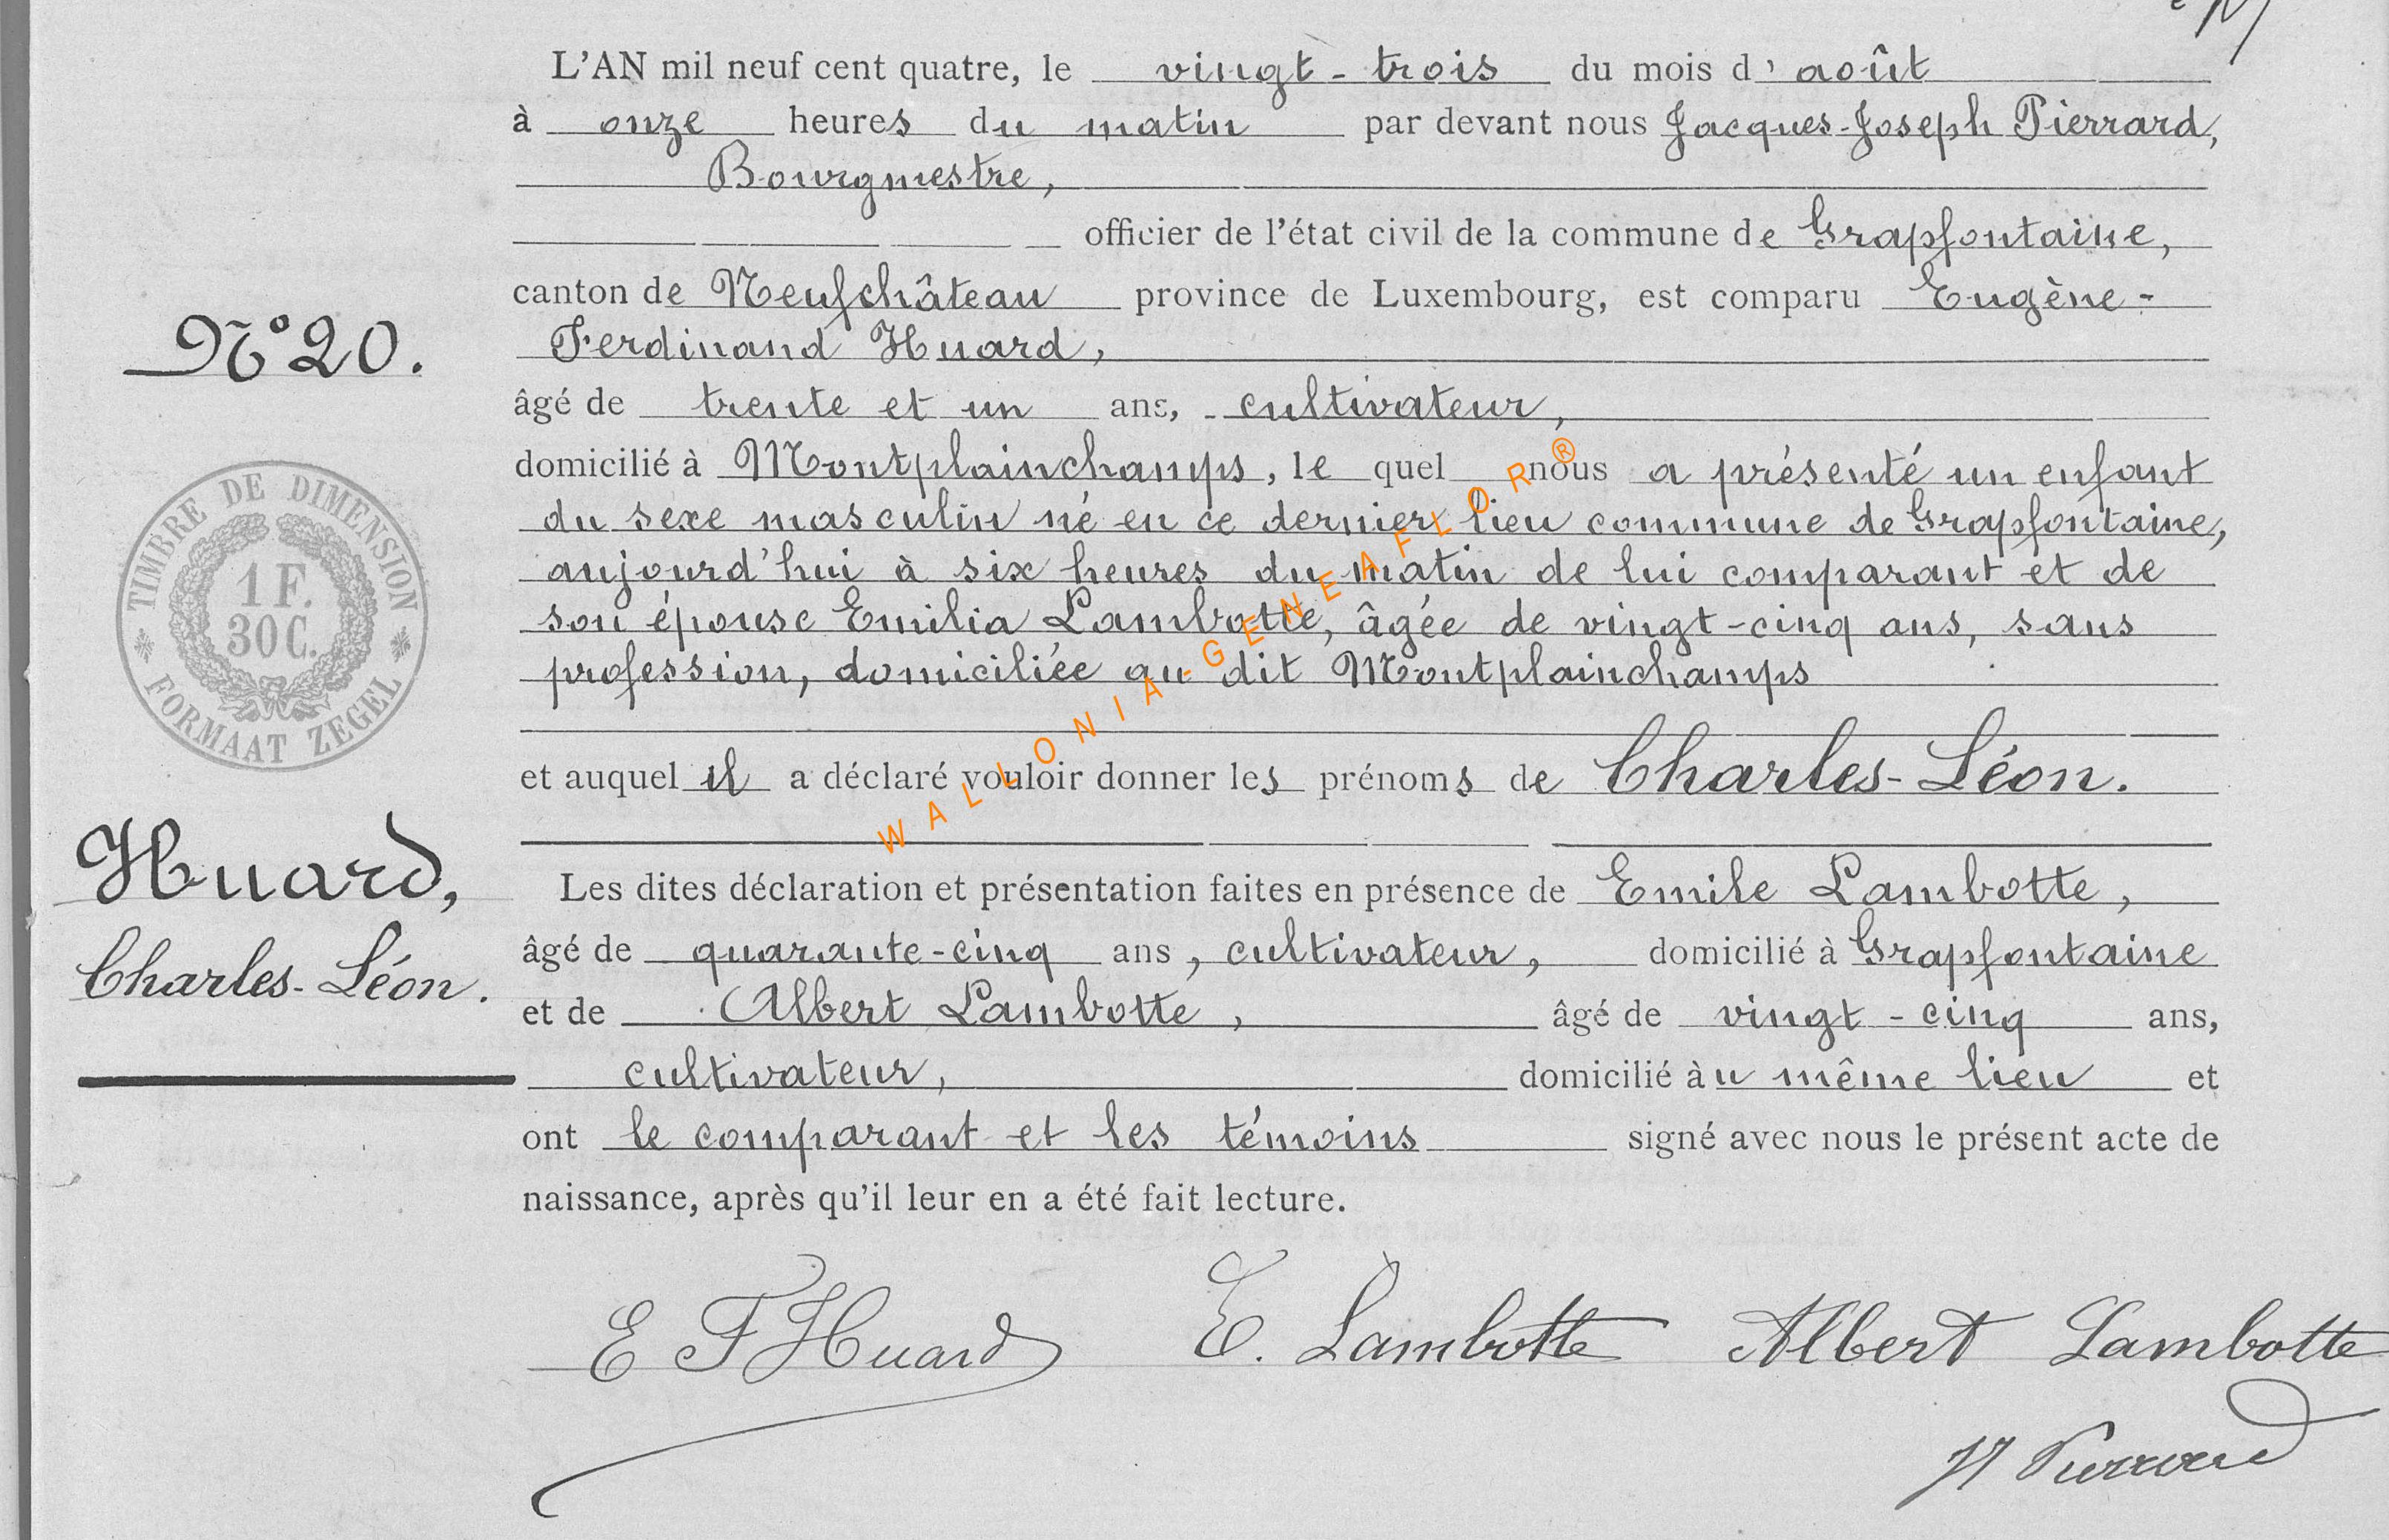 L'AN mil neuf cent quatre, le vingt-trois du mois d'août
à onze heures du matin par devant nous Jacques-Joseph Pierrard,
Bourgmestre,
officier de l'état civil de la commune de Grapfontaine,
canton de Neufchâteau province de Luxembourg, est comparu Eugène-
Ferdinand Huard,
âgé de trente et un ans, cultivateur,
domicilié à Montplainchamps, le quel nous a présenté un enfant
du sexe masculin né en ce dernier lieu commune de Grapfontaine,
aujourd'hui à six heures du matin de lui comparant et de
son épouse Emilia Lambotte, âgée de vingt-cinq ans, sans
profession, domiciliée au dit Montplainchamps
et auquel il a déclaré vouloir donner les prénoms de Charles-Léon.
Les dites déclaration et présentation faites en présence de Emile Lambotte,
âgé de quarante-cinq ans, cultivateur, domicilié à Grapfontaine
et de Albert Lambotte, âgé de vingt-cinq ans,
cultivateur, domicilié àu même lieu et
ont le comparant et les témoins signé avec nous le présent acte de
naissance, après qu'il leur en a été fait lecture.
N° 20.
TIMBRE DE DIMENSION
1 F.
30 C.
FORMAAT ZEGEL
Huard,
Charles-Léon.
WALLONIA-GENEAFLOR®
E F Huard E. Lambotte Albert Lambotte
Pierrard